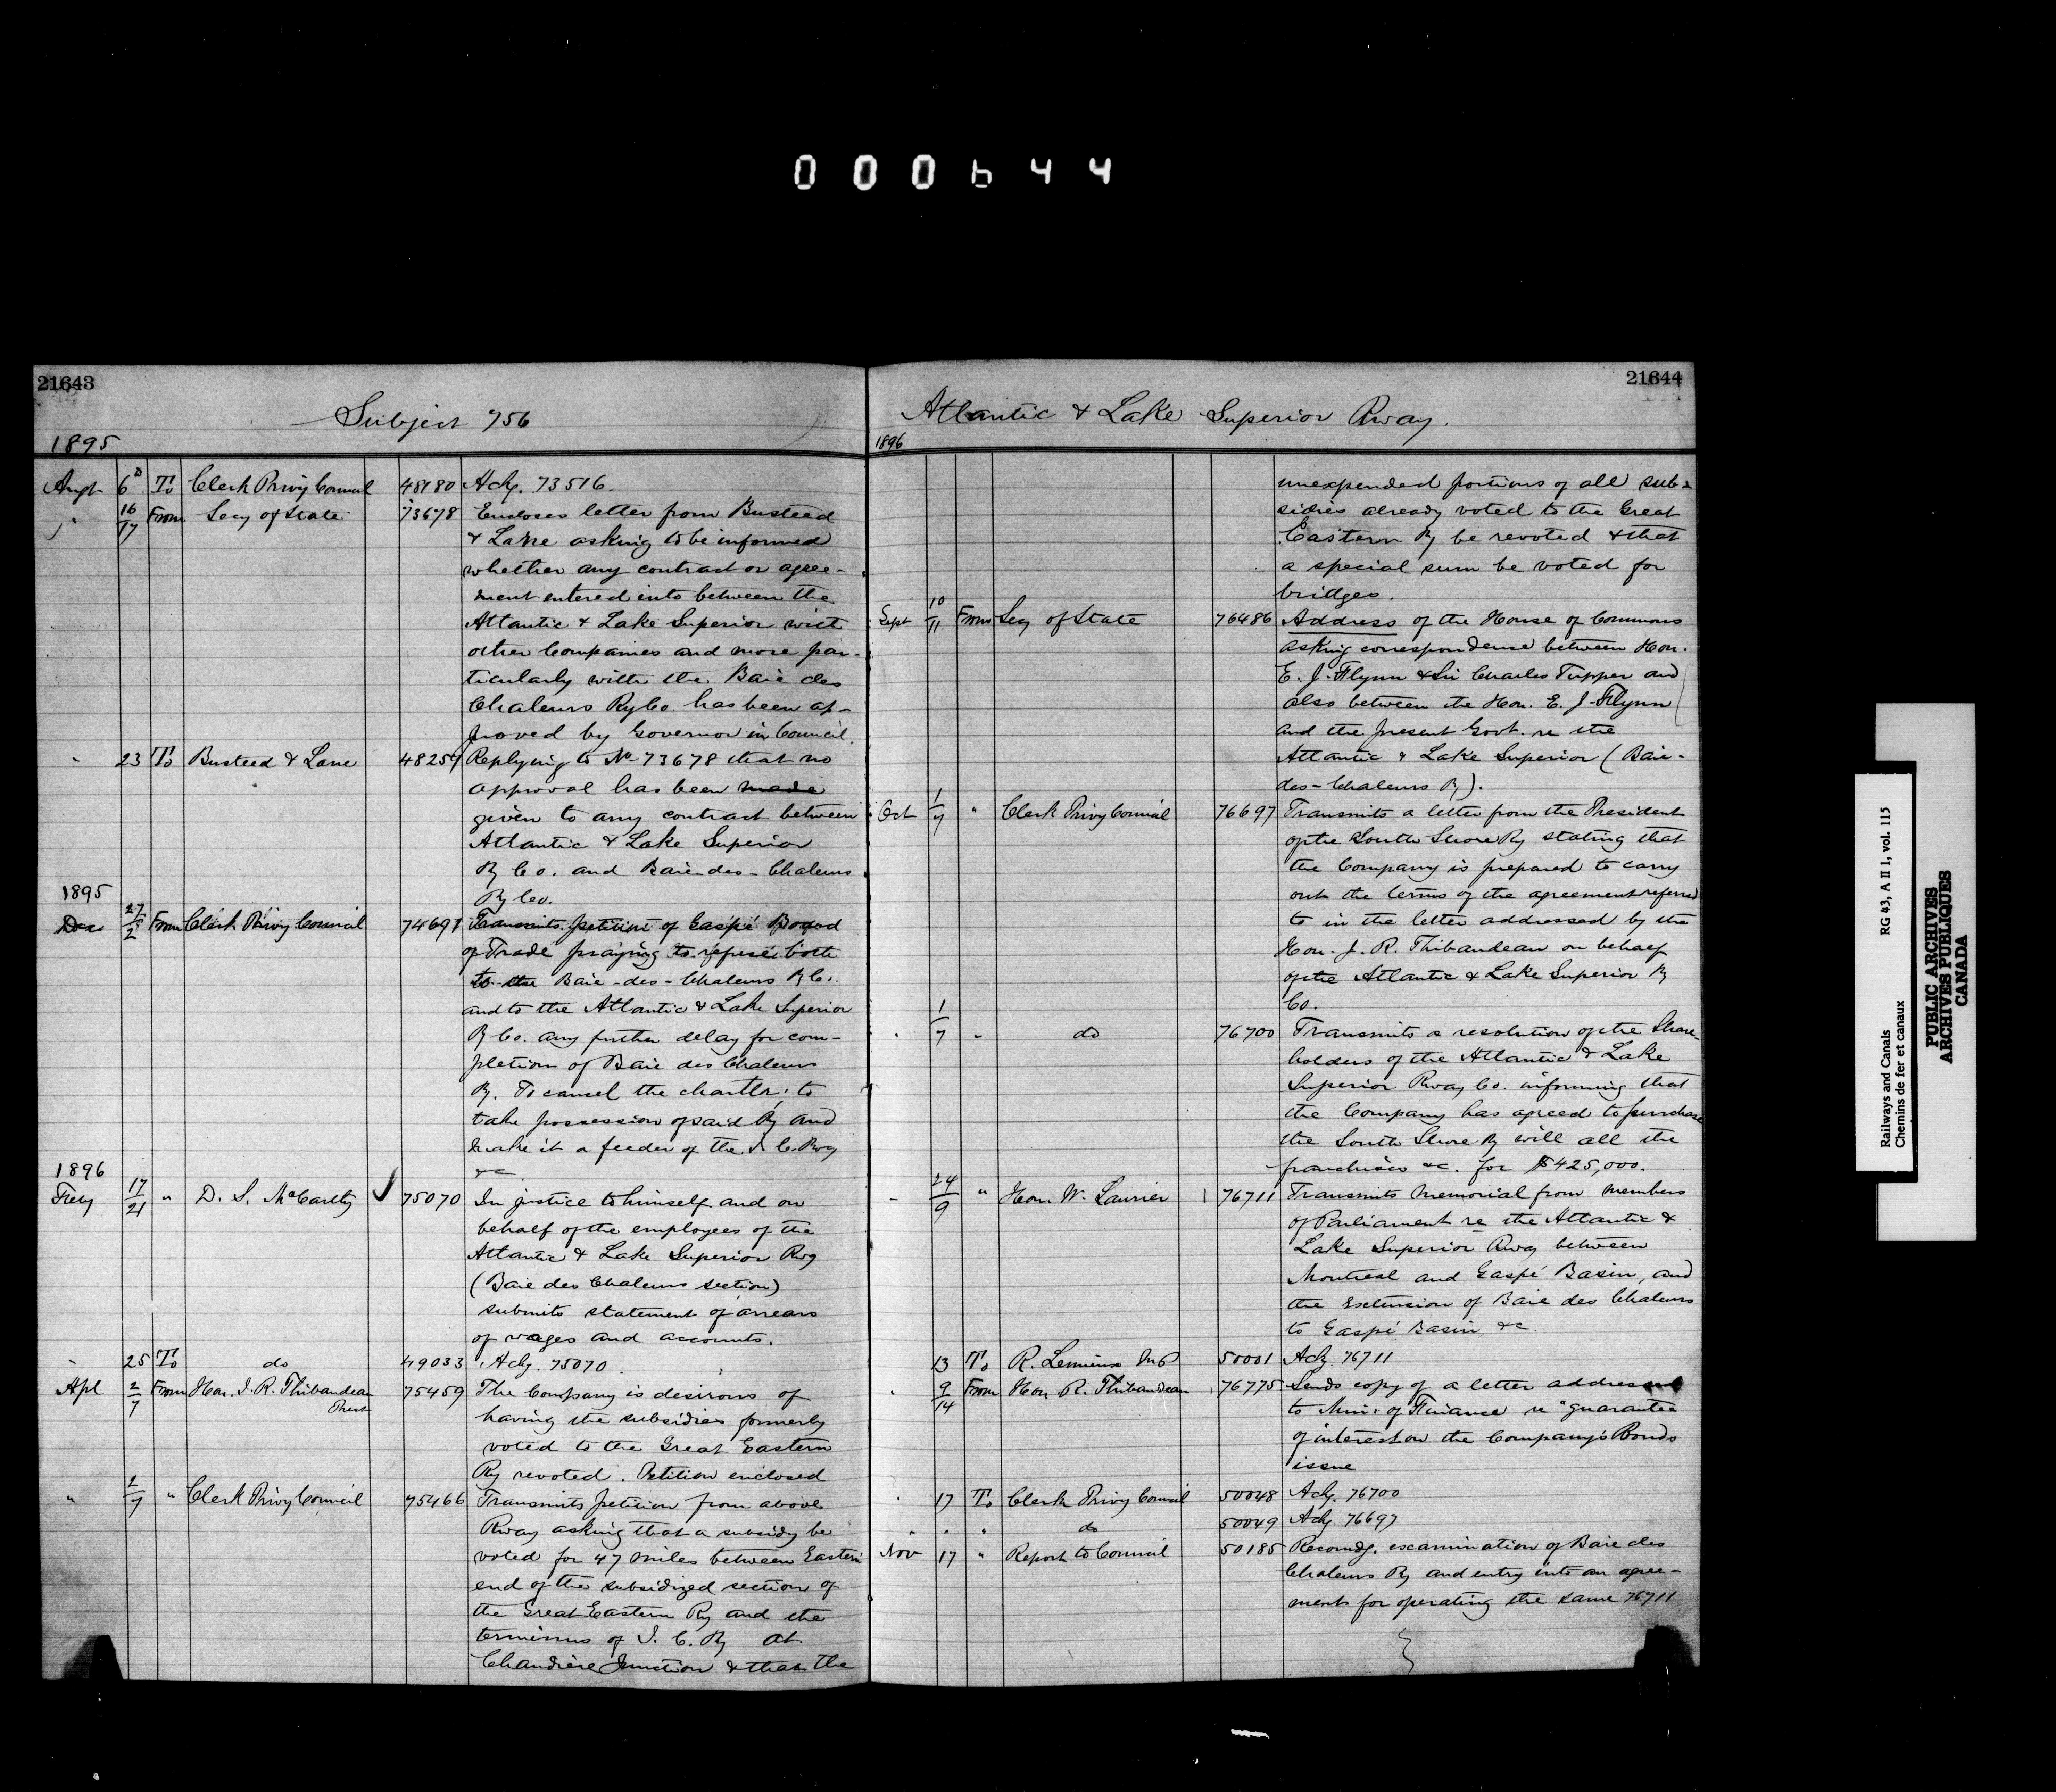 000644
21643
Subject 756
1895
Augt 6 To Clerk Privy Council 48180 Ackg. 73516.
" 16/17 From Secy of State 73678 Encloses letter from Busteed
& Lane asking to be informed
whether any contract or agree-
ment entered into between the
Atlantic & Lake Superior with
other Companies and more par-
ticularly with the Baie des
Chaleurs Ry Co. has been ap-
proved by Governor in Council.
" 23 To Busteed & Lane 48259 Replying to No 73678 that no
approval has been made
given to any contract between
Atlantic & Lake Superior
Ry Co. and Baie-des-Chaleurs
Ry Co.
1895
Dec 27/2 From Clerk Privy Council 74691 Transmits petition of Gaspé Board
of Trade praying to refuse both
to the Baie-des-Chaleurs Ry Co.
and to the Atlantic & Lake Superior
Ry Co. any further delay for com-
pletion of Baie des Chaleurs
Ry. To cancel the charter, to
take possession of said Ry and
make it a feeder of the I. C. Rwy
&c
1896
Feby 17/21 " D. S. McCarthy 75070 In justice to himself and on
behalf of the employees of the
Atlantic & Lake Superior Rwy
(Baie des Chaleurs section)
submits statement of arrears
of wages and accounts.
" 25 To do 49033 Ackg. 75070.
Apl 2/7 From Hon. J. R. Thibaudeau 75459 The Company is desirous of
Prest
having the subsidies formerly
voted to the Great Eastern
Ry revoted. Petition enclosed
" 2/7 " Clerk Privy Council 75466 Transmits petition from above
Rway asking that a subsidy be
voted for 47 miles between Eastern
end of the subsidized section of
the Great Eastern Ry and the
terminus of I. C. Ry at
Chaudière Junction & that the
21644
Atlantic & Lake Superior Rway.
1896
unexpended portions of all sub-
sidies already voted to the Great
Eastern Ry be revoted & that
a special sum be voted for
bridges.
Sept 10/11 From Secy of State 76486 Address of the House of Commons
asking correspondence between Hon.
E. J. Flynn & Sir Charles Tupper and
also between the Hon. E. J. Flynn
and the present Govt. re the
Atlantic & Lake Superior (Baie-
des-Chaleurs Ry).
Oct 1/7 " Clerk Privy Council 76697 Transmits a letter from the President
of the South Shore Ry stating that
the Company is prepared to carry
out the terms of the agreement referred
to in the letter addressed by the
Hon. J. R. Thibaudeau on behalf
of the Atlantic & Lake Superior Ry
Co.
" 1/7 " do 76700 Transmits a resolution of the Share-
holders of the Atlantic & Lake
Superior Rway Co. informing that
the Company has agreed to purchase
the South Shore Ry will all the
franchises &c. for $425,000.
" 24/9 " Hon. W. Laurier 76711 Transmits Memorial from Members
of Parliament re the Atlantic &
Lake Superior Rway between
Montreal and Gaspé Basin, and
the extension of Baie des Chaleurs
to Gaspé Basin, &c.
13 To R. Lemieux M.P. 50001 Ackg. 76711
" 9/14 From Hon R. Thibaudeau 76775 Sends copy of a letter addressed
to Min: of Finance re guarantee
of interest on the Company's Bonds
issue
" 17 To Clerk Privy Council 50048 Ackg. 76700
" " " do 50049 Ackg 76697
Nov 17 " Report to Council 50185 Recomdg. examination of Baie des
Chaleurs Ry and entry into an agree-
ment for operating the same 76711
Railways and Canals RG 43, A II 1, vol. 115
Chemins de fer et canaux
PUBLIC ARCHIVES
ARCHIVES PUBLIQUES
CANADA